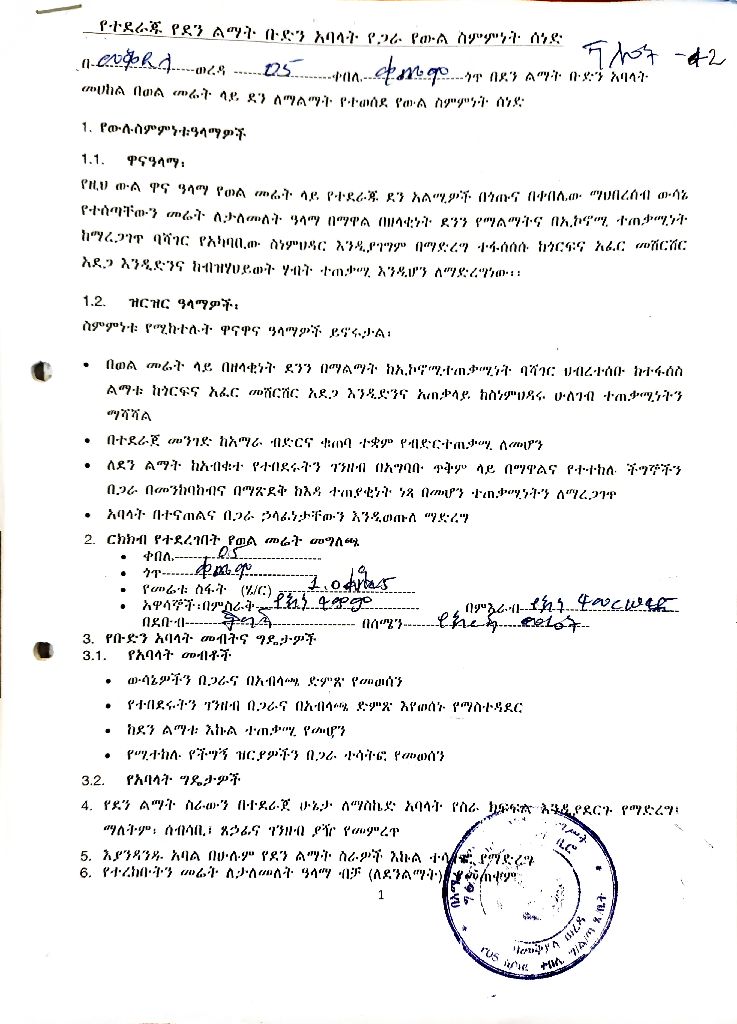 የተደራጁ የደን ልማት ቡድን አባላት የጋራ የውል ስምምነት ሰነድ
በ ወረዳ 05 ቀበሌ ጎጥ በደን ልማት ቡድን አባላት
መሀከል በወል መሬት ላይ ደን ለማልማት የተወሰደ የውል ስምምነት ሰነድ
1. የውሉስምምነቱዓላማዎች
1.1. ዋናዓላማ፡
የዚህ ውል ዋና ዓላማ የወል መሬት ላይ የተደራጁ ደን አልሚዎች በጎጡና በቀበሌው ማህበረሰብ ውሳኔ
የተሰጣቸውን መሬት ለታለመለት ዓላማ በማዋል በዘላቂነት ደንን የማልማትና በኢኮኖሚ ተጠቃሚነት
ከማረጋገጥ ባሻገር የአካባቢው ስነምህዳር እንዲያገግም በማድረግ ተፋሰሰሱ ከጎርፍና አፈር መሸርሸር
አደጋ እንዲድንና ከብዝሃህይወት ሃብት ተጠቃሚ እንዲሆን ለማድረግነው፡፡
1.2. ዝርዝር ዓላማዎች፡
ስምምነቱ የሚከተሉት ዋናዋና ዓላማዎች ይኖሩታል፡
• በወል መሬት ላይ በዘላቂነት ደንን በማልማት ከኢኮኖሚተጠቃሚነት ባሻገር ህብረተሰቡ ከተፋሰስ
ልማቱ ከጎርፍና አፈር መሸርሸር አደጋ እንዲድንና አጠቃላይ ከስነምህዳሩ ሁለገብ ተጠቃሚነትን
ማሻሻል
• በተደራጀ መንገድ ከአማራ ብድርና ቁጠባ ተቋም የብድርተጠቃሚ ለመሆን
• ለደን ልማት ከአብቁተ የተበደሩትን ገንዘብ በአግባቡ ጥቅም ላይ በማዋልና የተተከሉ ችግኞችን
በጋራ በመንከባከብና በማጽደቅ ከእዳ ተጠያቂነት ነጻ በመሆን ተጠቃሚነትን ለማረጋገጥ
• አባላት በተናጠልና በጋራ ኃላፊነታቸውን እንዲወጡለ ማድረግ
2. ርክክብ የተደረገበት የወል መሬት መግለጫ
• ቀበሌ 05
• ጎጥ
• የመሬቱ ስፋት (ሄ/ር)
• አዋሳኞች፡በምስራቅ በምእራብ
በደቡብ በሰሜን
3. የቡድን አባላት መብትና ግዴታዎች
3.1. የአባላት መብቶች
• ውሳኔዎችን በጋራና በአብላጫ ድምጽ የመወሰን
• የተበደሩትን ገንዘብ በጋራና በአብላጫ ድምጽ እየወሰኑ የማስተዳደር
• ከደን ልማቱ እኩል ተጠቃሚ የመሆን
• የሚተከሉ የችግኝ ዝርያዎችን በጋራ ተሳትፎ የመወሰን
3.2. የአባላት ግዴታዎች
4. የደን ልማት ስራውን በተደራጀ ሁኔታ ለማስኬድ አባላት የስራ ክፍፍል እንዲያደርጉ የማድረግ፡
ማለትም፡ ሰብሳቢ፡ ጸኃፊና ገንዘብ ያዥ የመምረጥ
5. እያንዳንዱ አባል በሁሉም የደን ልማት ስራዎች እኩል የማድረግ
6. የተረከቡትን መሬት ለታለመለት ዓላማ ብቻ (ለደንልማት)
1